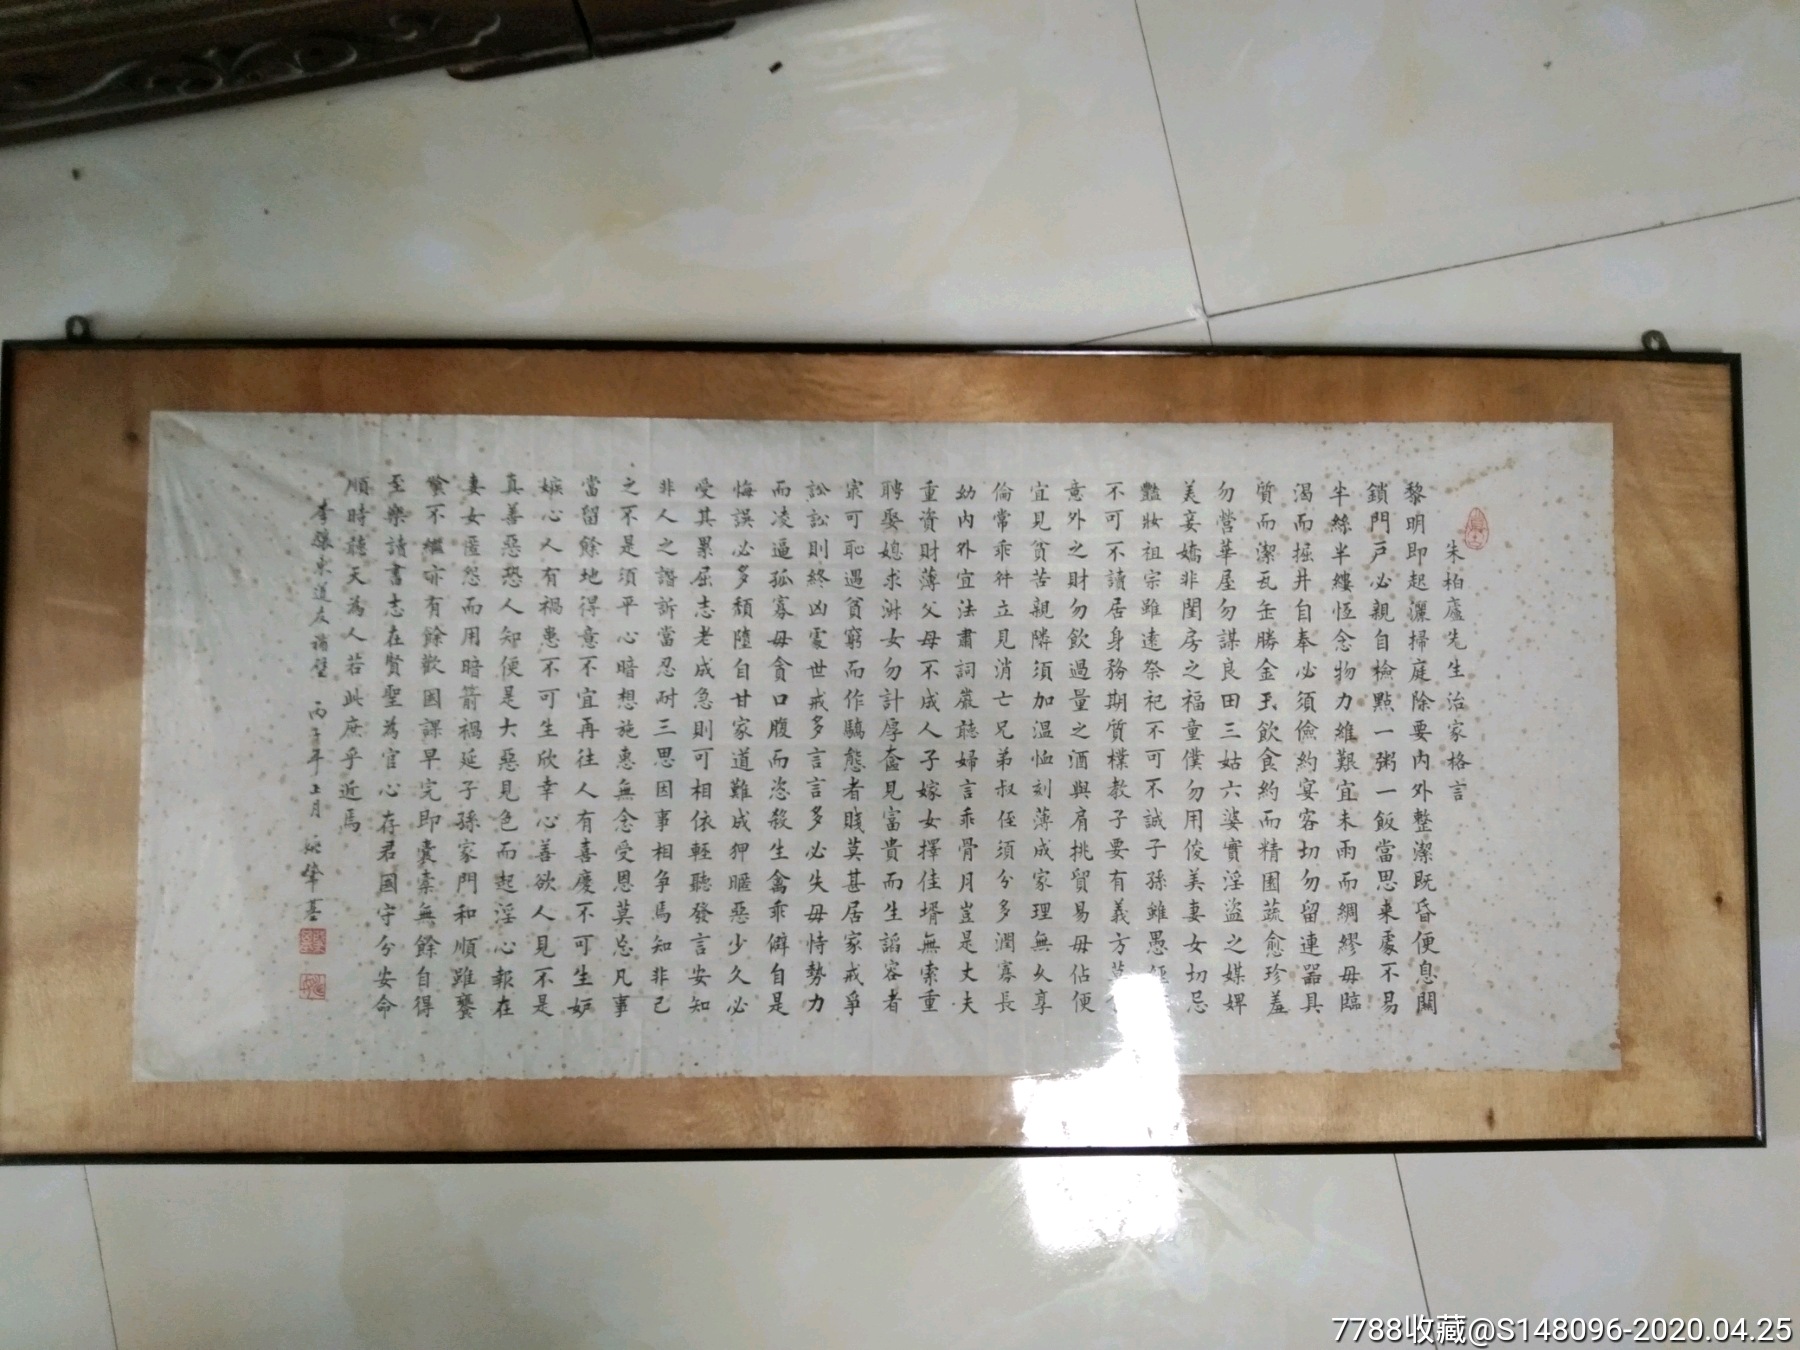 朱柏廬先生治家格言
黎明即起灑掃庭除要內外整潔既昏便息關
鎖門戶必親自檢點一粥一飯當思来處不易
半絲半縷恆念物力維艱宜未雨而綢繆毋臨
渴而掘井自奉必須儉約宴客切勿留連器具
質而潔瓦缶勝金玉飲食約而精園蔬愈珍羞
勿營華屋勿謀良田三姑六婆實淫盜之媒婢
美妾嬌非閨房之福童僕勿用俊美妻女切忌
豔妝祖宗雖遠祭祀不可不誠子孫雖愚經
不可不讀居身務期質樸教子要有義方
意外之財勿飲過量之酒與肩挑貿易毋佔便
宜見貧苦親隣須加温恤刻薄成家理無久享
倫常乖舛立見消亡兄弟叔侄須分多潤寡長
幼內外宜法肅詞嚴聽婦言乖骨月豈是大夫
重資財薄父母不成人子嫁女擇佳壻無索重
聘娶媳求淋女勿計厚奩見富貴而生謟容者
宗可恥遇貧窮而作驕態者賤莫甚居家戒爭
訟訟則終凶處世戒多言言多必失毋恃勢力
而凌逼孤寡毋貪口腹而恣殺生禽乖僻自是
悔誤必多頹隳自甘家道難成狎暱惡少久必
受其累屈志老成急則可相依輕聽發言安知
非人之譖訴當忍耐三思因事相争焉知非己
之不是須平心暗想施惠無念受恩莫忘凡事
當留餘地得意不宜再往人有喜慶不可生妒
嫉心人有禍患不可生欣幸心善欲人見不是
真善惡恐人知便是大惡見色而起淫心報在
妻女匿怨而用暗箭禍延子孫家門和順雖饔
飧不繼亦有餘歡國課早完即囊橐無餘自得
至樂讀書志在賢聖為官心存君國守分安命
順時聽天為人若此庶乎近焉
李 東道友補壁 丙子年上月 姚肇基
7788收藏@S148096-2020.04.25